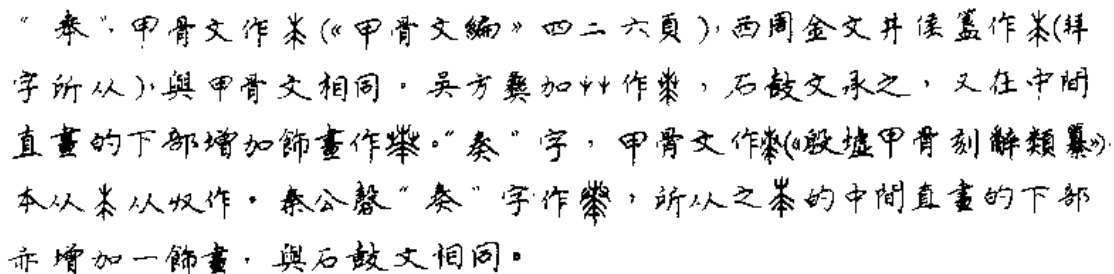 “𠦪”，甲骨文作（《甲骨文編》四二六頁），西周金文井侯簋作（拜
字所从），與甲骨文相同。吳方彝加艸作，石鼓文承之，又在中間
直畫的下部增加飾畫作。“奏”字，甲骨文作（《殷墟甲骨刻辭類纂》）
本从从収作。秦公磬“奏”字作，所从之的中間直畫的下部
亦增加一飾畫，與石鼓文相同。